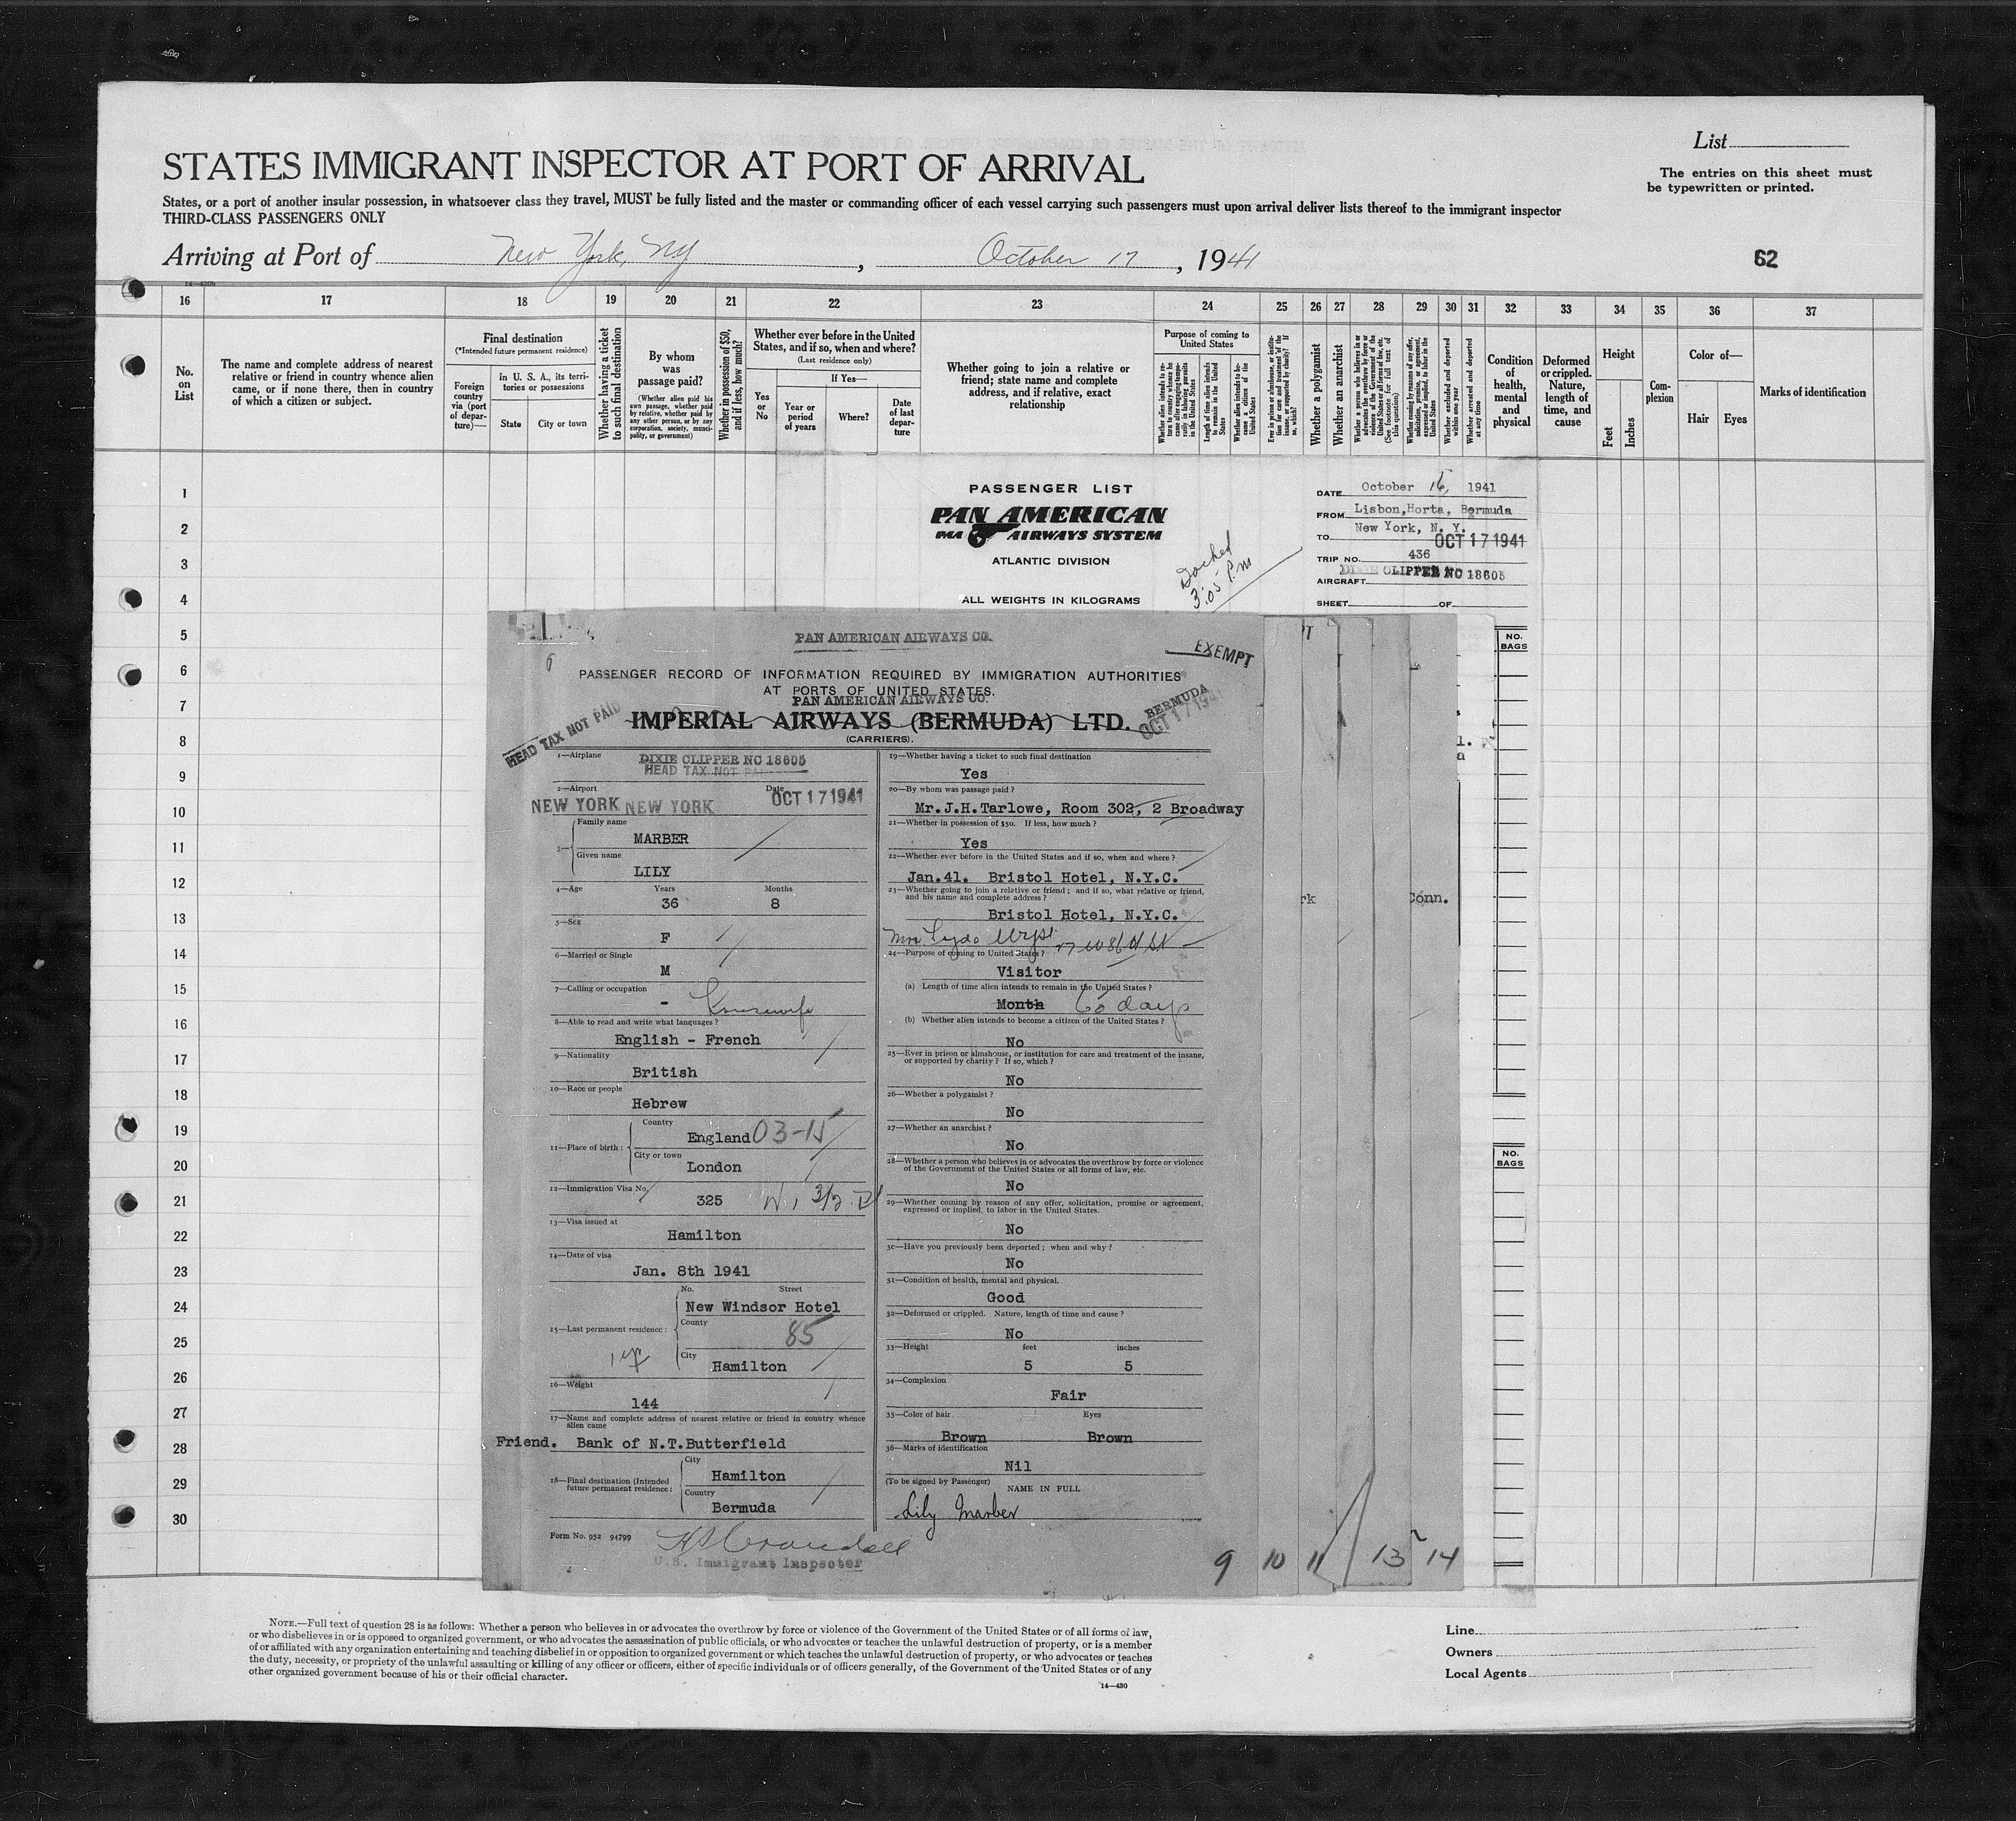 List
STATES IMMIGRANT INSPECTOR AT PORT OF ARRIVAL
The entries on this sheet must
be typewritten or printed.
States, or a port of another insular possession, in whatsoever class they travel, MUST be fully listed and the master or commanding officer of each vessel carrying such passengers must upon arrival deliver lists thereof to the immigrant inspector
THIRD-CLASS PASSENGERS ONLY
Arriving at Port of New York, NY, October 17, 1941
62
16 17 18 19 20 21 22 23 24 25 26 27 28 29 30 31 32 33 34 35 36 37
No. on List
The name and complete address of nearest
relative or friend in country whence alien
came, or if none there, then in country
of which a citizen or subject.
Final destination
(*Intended future permanent residence)
Foreign country via (port of departure)—
In U. S. A., its territories or possessions
State
City or town
Whether having a ticket to such final destination
By whom was passage paid?
(Whether alien paid his own passage, whether paid by relative, whether paid by any other person, or by any corporation, society, municipality, or government)
Whether in possession of $50, and if less, how much?
Whether ever before in the United States, and if so, when and where?
(Last residence only)
Yes or No
If Yes—
Year or period of years
Where?
Date of last departure
Whether going to join a relative or
friend; state name and complete
address, and if relative, exact
relationship
Purpose of coming to United States
Whether alien intends to return to country whence he came after engaging temporarily in laboring pursuits in the United States
Length of time alien intends to remain in the United States
Whether alien intends to become a citizen of the United States
Ever in prison or almshouse, or institution for care and treatment of the insane, or supported by charity? If so, which?
Whether a polygamist
Whether an anarchist
Whether a person who believes in or advocates the overthrow by force or violence of the Government of the United States or all forms of law, etc. (See footnote for full text of this question)
Whether coming by reason of any offer, solicitation, promise, or agreement, expressed or implied, to labor in the United States
Whether excluded and deported within one year
Whether arrested and deported at any time
Condition of health, mental and physical
Deformed or crippled. Nature, length of time, and cause
Height
Feet
Inches
Complexion
Color of—
Hair
Eyes
Marks of identification
1
2
3
4
5
6
7
8
9
10
11
12
13
14
15
16
17
18
19
20
21
22
23
24
25
26
27
28
29
30
PASSENGER LIST
PAN AMERICAN
PAA AIRWAYS SYSTEM
ATLANTIC DIVISION
ALL WEIGHTS IN KILOGRAMS
Docked
3:05 P.m
DATE October 15, 1941
FROM Lisbon, Horta, Bermuda
TO New York, N. Y.
OCT 17 1941
TRIP NO. 436
AIRCRAFT DIXIE CLIPPER NC 18605
SHEET OF
NO. BAGS
NO. BAGS
rk
Conn.
PAN AMERICAN AIRWAYS CO.
EXEMPT
PASSENGER RECORD OF INFORMATION REQUIRED BY IMMIGRATION AUTHORITIES
AT PORTS OF UNITED STATES.
PAN AMERICAN AIRWAYS CO.
IMPERIAL AIRWAYS (BERMUDA) LTD.
(CARRIERS).
HEAD TAX NOT PAID
BERMUDA
OCT 17 194
1—Airplane DIXIE CLIPPER NC 18605
HEAD TAX NOT PA
2—Airport Date
NEW YORK NEW YORK OCT 17 1941
3— Family name
MARBER
Given name
LILY
4—Age Years Months
36 8
5—Sex
F
6—Married or Single
M
7—Calling or occupation
- Housewife
8—Able to read and write what languages?
English - French
9—Nationality
British
10—Race or people
Hebrew
11—Place of birth: Country
England 03-15
City or town
London
12—Immigration Visa No.
325
13—Visa issued at
Hamilton
14—Date of visa
Jan. 8th 1941
15—Last permanent residence: No. Street
New Windsor Hotel
County
85
City
Hamilton
16—Weight
144
17—Name and complete address of nearest relative or friend in country whence
alien came
Friend. Bank of N.T.Butterfield
18—Final destination (Intended
future permanent residence:
City
Hamilton
Country
Bermuda
Form No. 952 94799
U.S. Immigrant Inspector
19—Whether having a ticket to such final destination
Yes
20—By whom was passage paid?
Mr.J.H.Tarlowe, Room 302, 2 Broadway
21—Whether in possession of $50. If less, how much?
Yes
22—Whether ever before in the United States and if so, when and where?
Jan.41. Bristol Hotel, N.Y.C.
23—Whether going to join a relative or friend; and if so, what relative or friend,
and his name and complete address?
Bristol Hotel, N.Y.C.
24—Purpose of coming to United States?
Visitor
(a) Length of time alien intends to remain in the United States?
Month 60 days
(b) Whether alien intends to become a citizen of the United States?
No
25—Ever in prison or almshouse, or institution for care and treatment of the insane,
or supported by charity? If so, which?
No
26—Whether a polygamist?
No
27—Whether an anarchist?
No
28—Whether a person who believes in or advocates the overthrow by force or violence
of the Government of the United States or all forms of law, etc.
No
29—Whether coming by reason of any offer, solicitation, promise or agreement,
expressed or implied, to labor in the United States.
No
30—Have you previously been deported; when and why?
No
31—Condition of health, mental and physical.
Good
32—Deformed or crippled. Nature, length of time and cause?
No
33—Height feet inches
5 5
34—Complexion
Fair
35—Color of hair Eyes
Brown Brown
36—Marks of identification
Nil
(To be signed by Passenger)
NAME IN FULL
Lily Marber
9 10 11 13 14
NOTE.—Full text of question 28 is as follows: Whether a person who believes in or advocates the overthrow by force or violence of the Government of the United States or of all forms of law,
or who disbelieves in or is opposed to organized government, or who advocates the assassination of public officials, or who advocates or teaches the unlawful destruction of property, or is a member
of or affiliated with any organization entertaining and teaching disbelief in or opposition to organized government or which teaches the unlawful destruction of property, or who advocates or teaches
the duty, necessity, or propriety of the unlawful assaulting or killing of any officer or officers, either of specific individuals or of officers generally, of the Government of the United States or of any
other organized government because of his or their official character.
14—430
Line
Owners
Local Agents